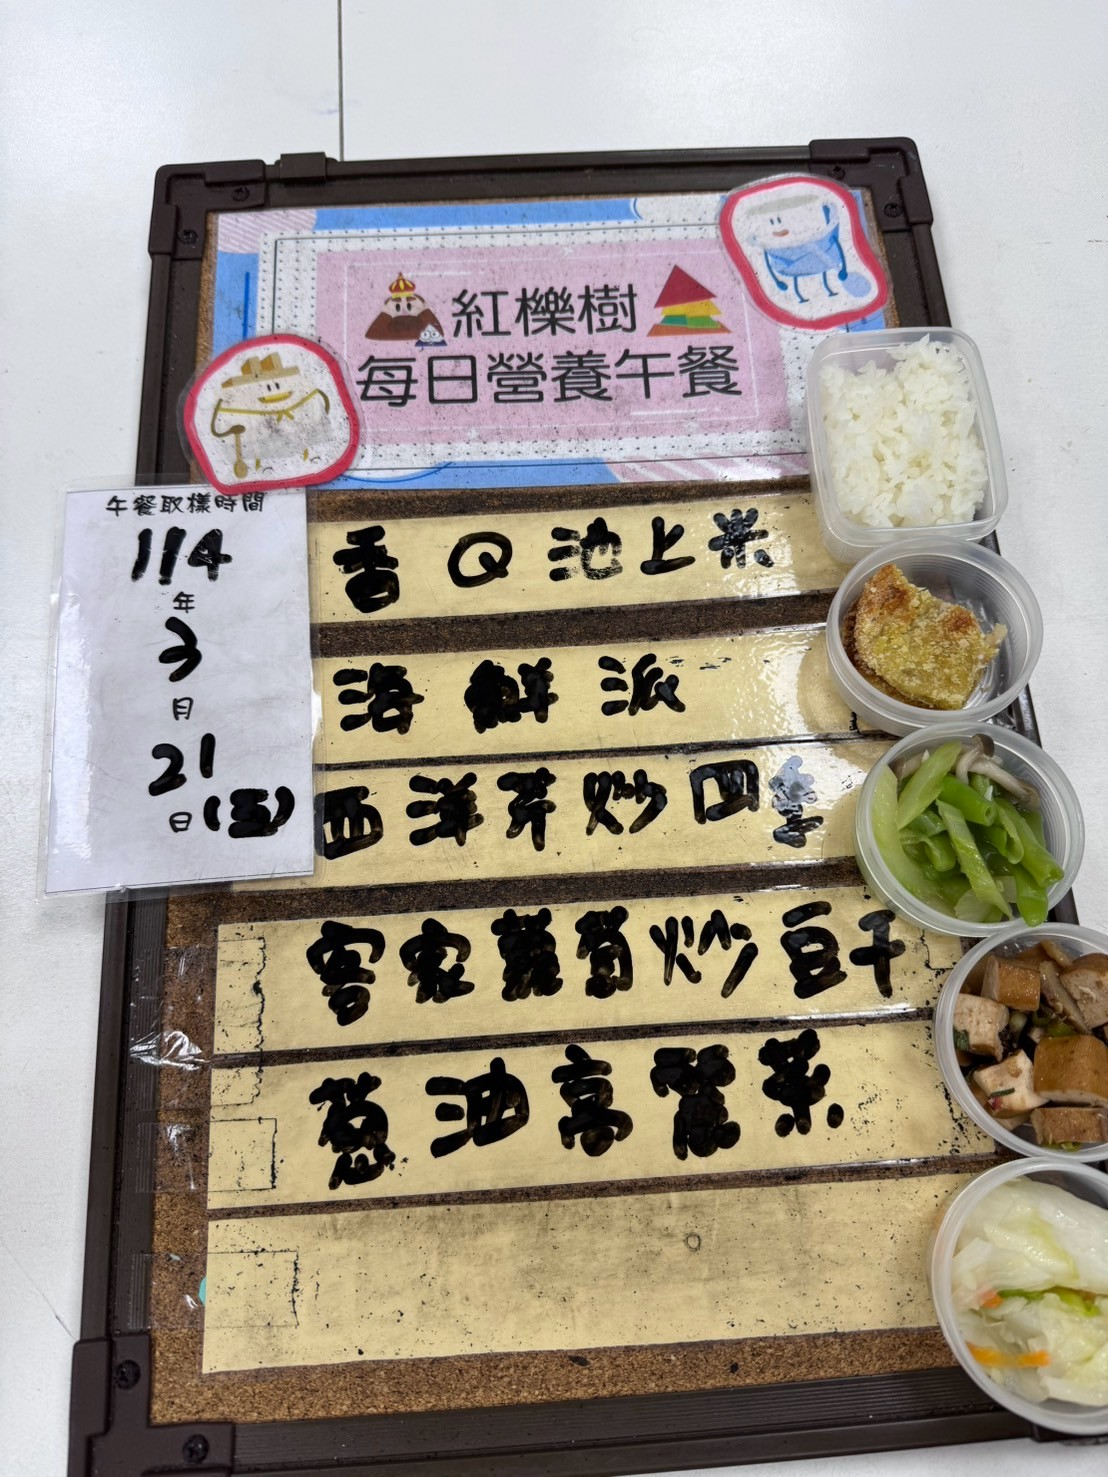 紅櫟樹
每日營養午餐
午餐取樣時間
114
年
3
月
21
日(五)
香Q池上米
海鮮派
西洋芹炒四季
客家蘿蔔炒豆干
蔥油高麗菜